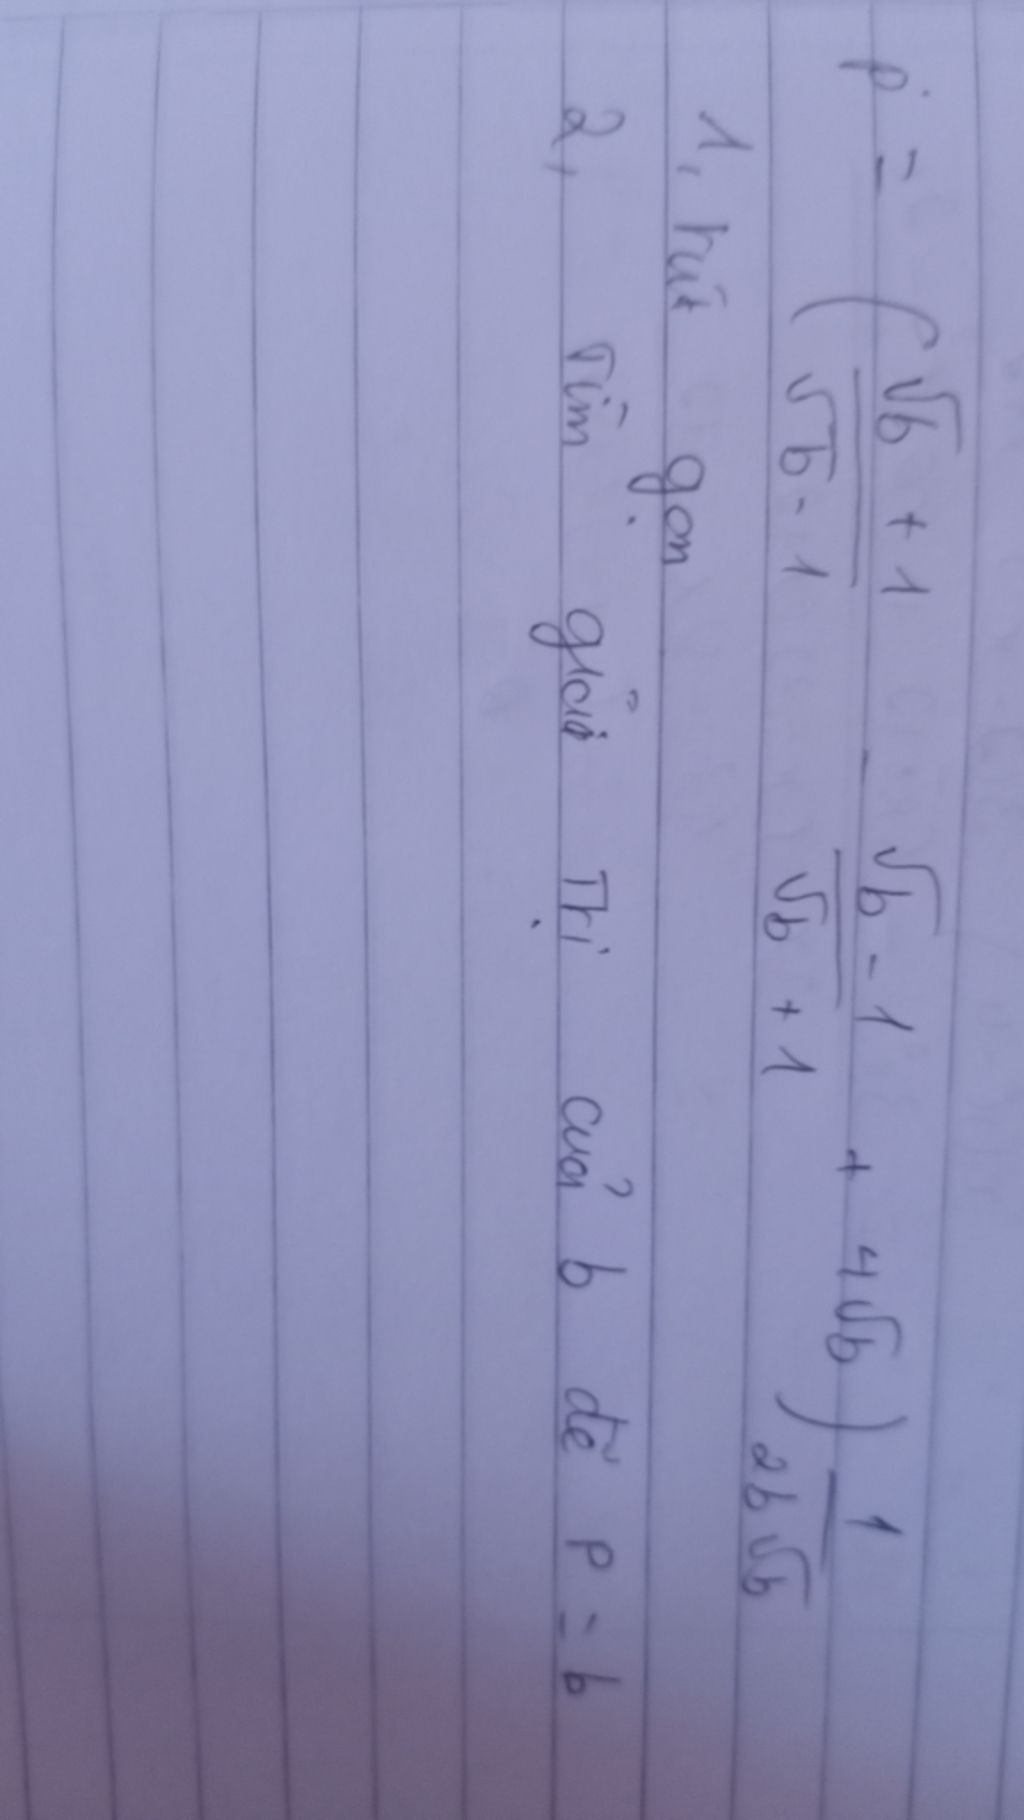 P = ( (√b + 1)/(√b - 1) - (√b - 1)/(√b + 1) + 4√b ) 1/(2b√b)
1, rút gọn
2, Tìm giá Trị của b để P = b